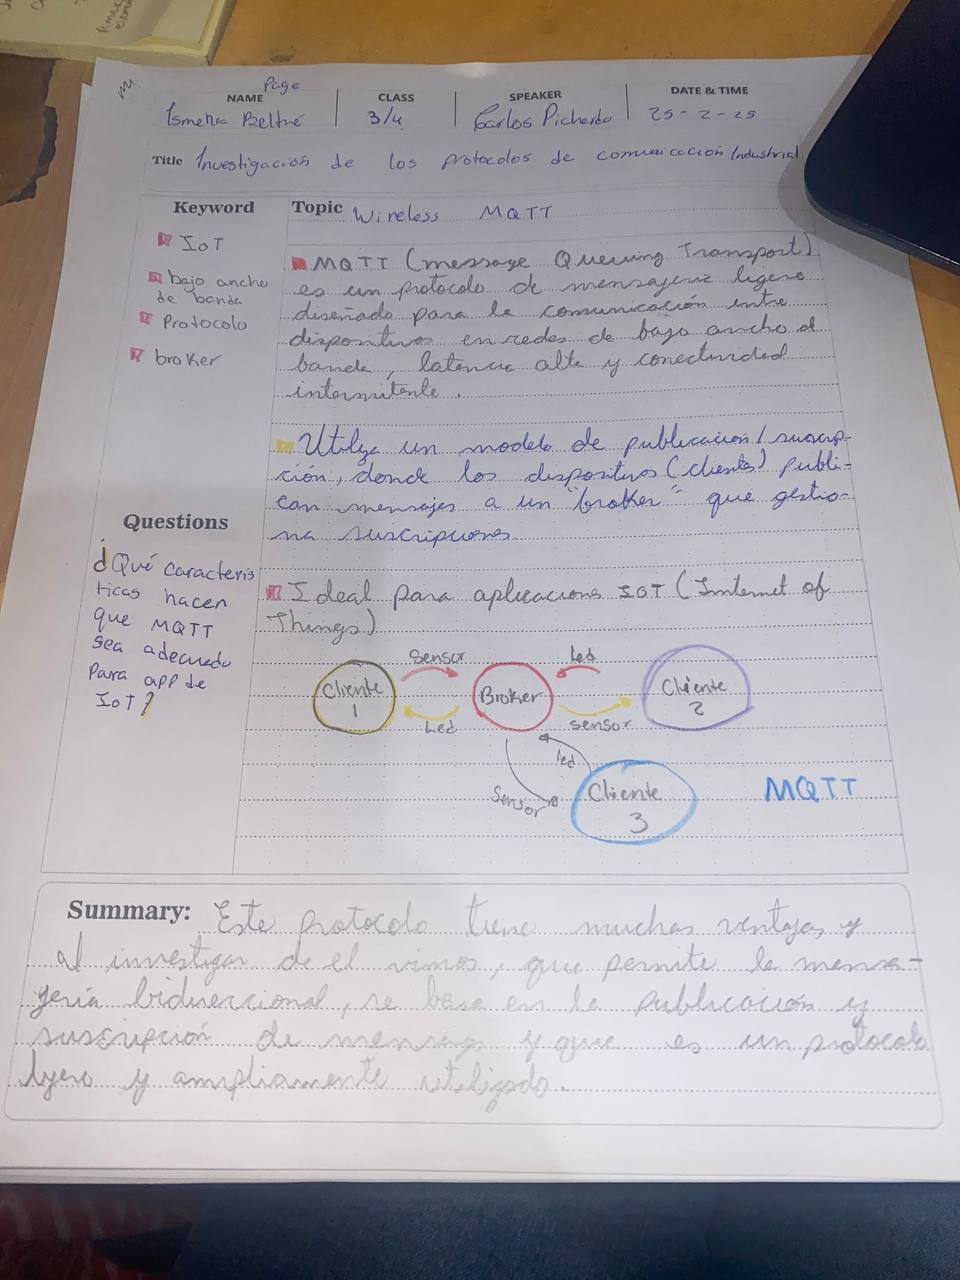 Page
NAME
CLASS
SPEAKER
DATE & TIME
Ismenia Beltré
3/4
Carlos Pichardo
25-2-25
Title Investigación de los protocolos de comunicación Industrial
Keyword
IoT
bajo ancho
de banda
Protocolo
broker
Topic Wireless MQTT
MQTT (message Queuing Transport)
es un protocolo de mensajeria ligero
diseñado para la comunicación entre
dispositivos en redes de bajo ancho d
banda, latencia alta y conectividad
intermitente.
Utiliza un modelo de publicación/suscrip-
ción, donde los dispositivos (clientes) publi-
can mensajes a un "broker" que gestio-
na suscripciones
Ideal para aplicaciones IOT (Internet of
Things)
Questions
¿Qué caracterís
ticas hacen
que MQTT
sea adecuado
para app de
IoT?
Sensor
Led
Cliente
1
Broker
Cliente
2
Led
sensor
Led
Sensor
Cliente
3
MQTT
Summary: Este protocolo tiene muchas ventajas y
al investigar de el vimos, que permite la mensa-
gería bidireccional, se basa en la publicación y
suscripción de mensajes y que es un protocolo
ligero y ampliamente utilizado.